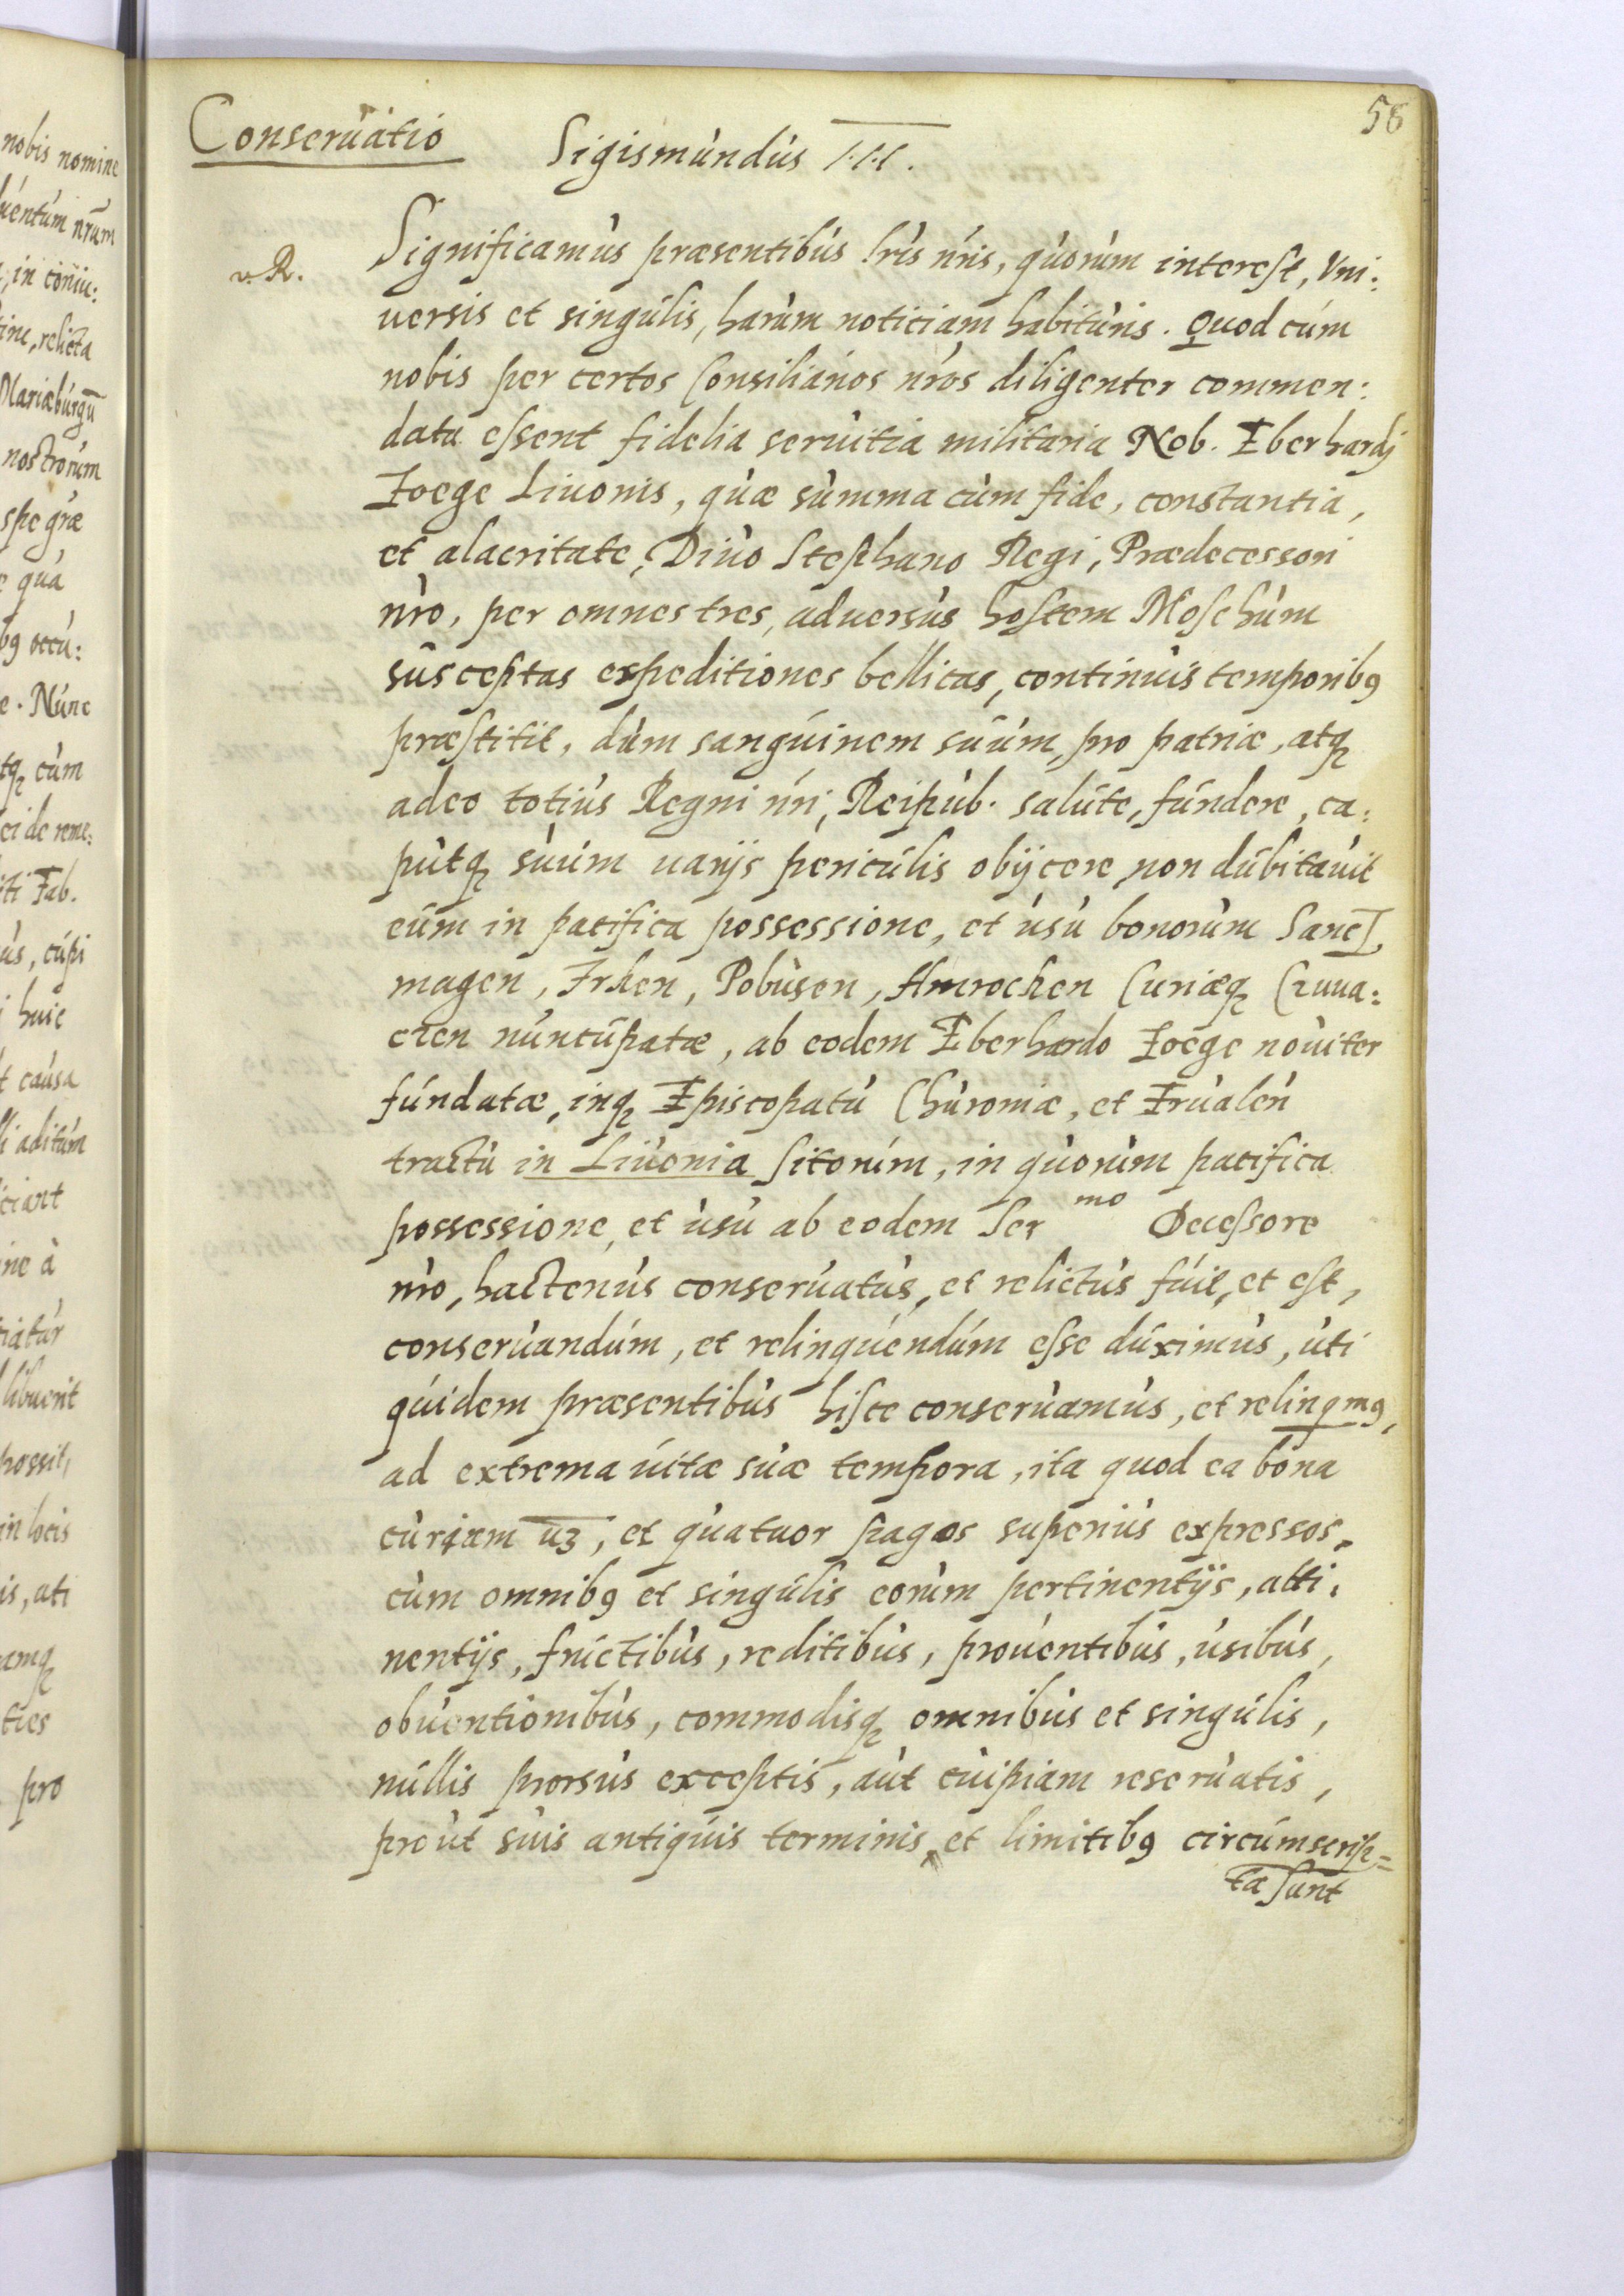 58
Conseruatio Sigismundus III.
Significamus præsentibus lris nris, quorum interest, Vni:
uersis et singulis, harum noticiam habituris. Quod cum
nobis per certos Consiliarios nros diligenter commen:
data essent fidelia seruitia militaria Nob. Eberhardj
Zoege Liuonis, quæ summa cum fide, constantia,
et alacritate, Diuo Stephano Regi, Prædecessori
nro, per omnes tres, aduersus hostem Moschum
susceptas expeditiones bellicas, continuis temporibꝯ
præstitit, dum sanguinem suum, pro patriæ, atqꝫ
adeo totius Regni nri, Reipub. salute, fundere, ca:
putqꝫ suum uarijs periculis obijcere non dubitauit
eum in pacifica possessione, et usu bonorum Sanct
magen, Irken, Pobusen, Amrochen Curiæqꝫ
nuncupatæ, ab eodem Eberhardo Zoege nouiter
fundatæ, inqꝫ Episcopatu Churoniæ, et Erualen
tractu in Liuonia sitorum, in quorum pacifica
possessione, et usu ab eodem Ser mo Decessore
nro, hactenus conseruatus, et relictus fuit, et est,
conseruandum, et relinquendum esse duximus, uti
quidem præsentibus hisce conseruamus, et relinqmꝯ,
ad extrema uitæ suæ tempora, ita quod ea bona
curiam uꝫ, et quatuor pagos superius expressos,
cum omnibꝯ et singulis eorum pertinentijs, atti:
nentijs, fructibus, reditibus, prouentibus, usibus,
obuentionibus, commodisqꝫ omnibus et singulis,
nullis prorsus exceptis, aut cuipiam reseruatis,
prout suis antiquis terminis, et limitibꝯ circumscrip=
ta sunt